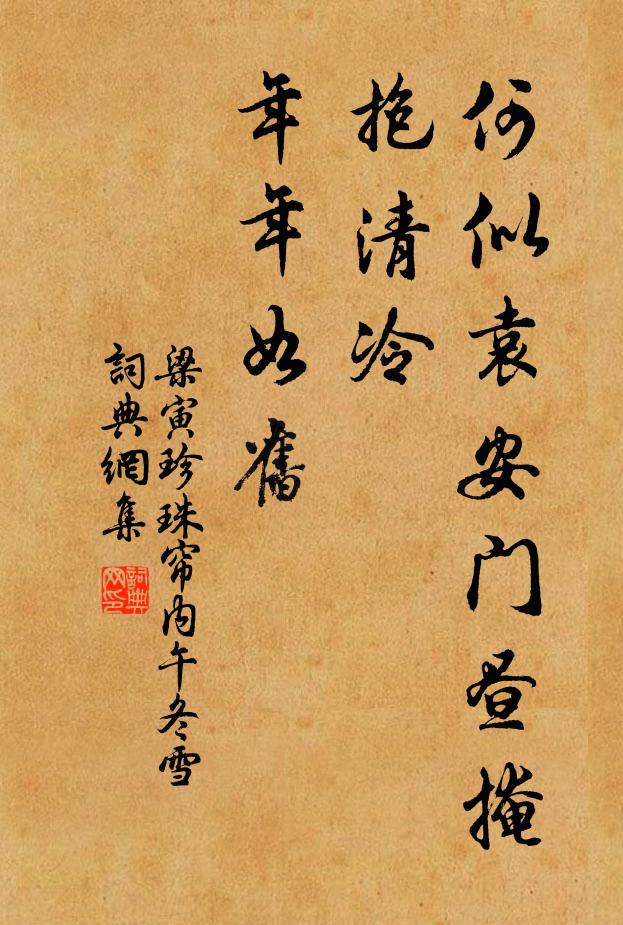 何似袁安門昼掩
抱清冷
年年如舊
梁寅珍珠帘内午冬雪
詞典網集
詞典网印